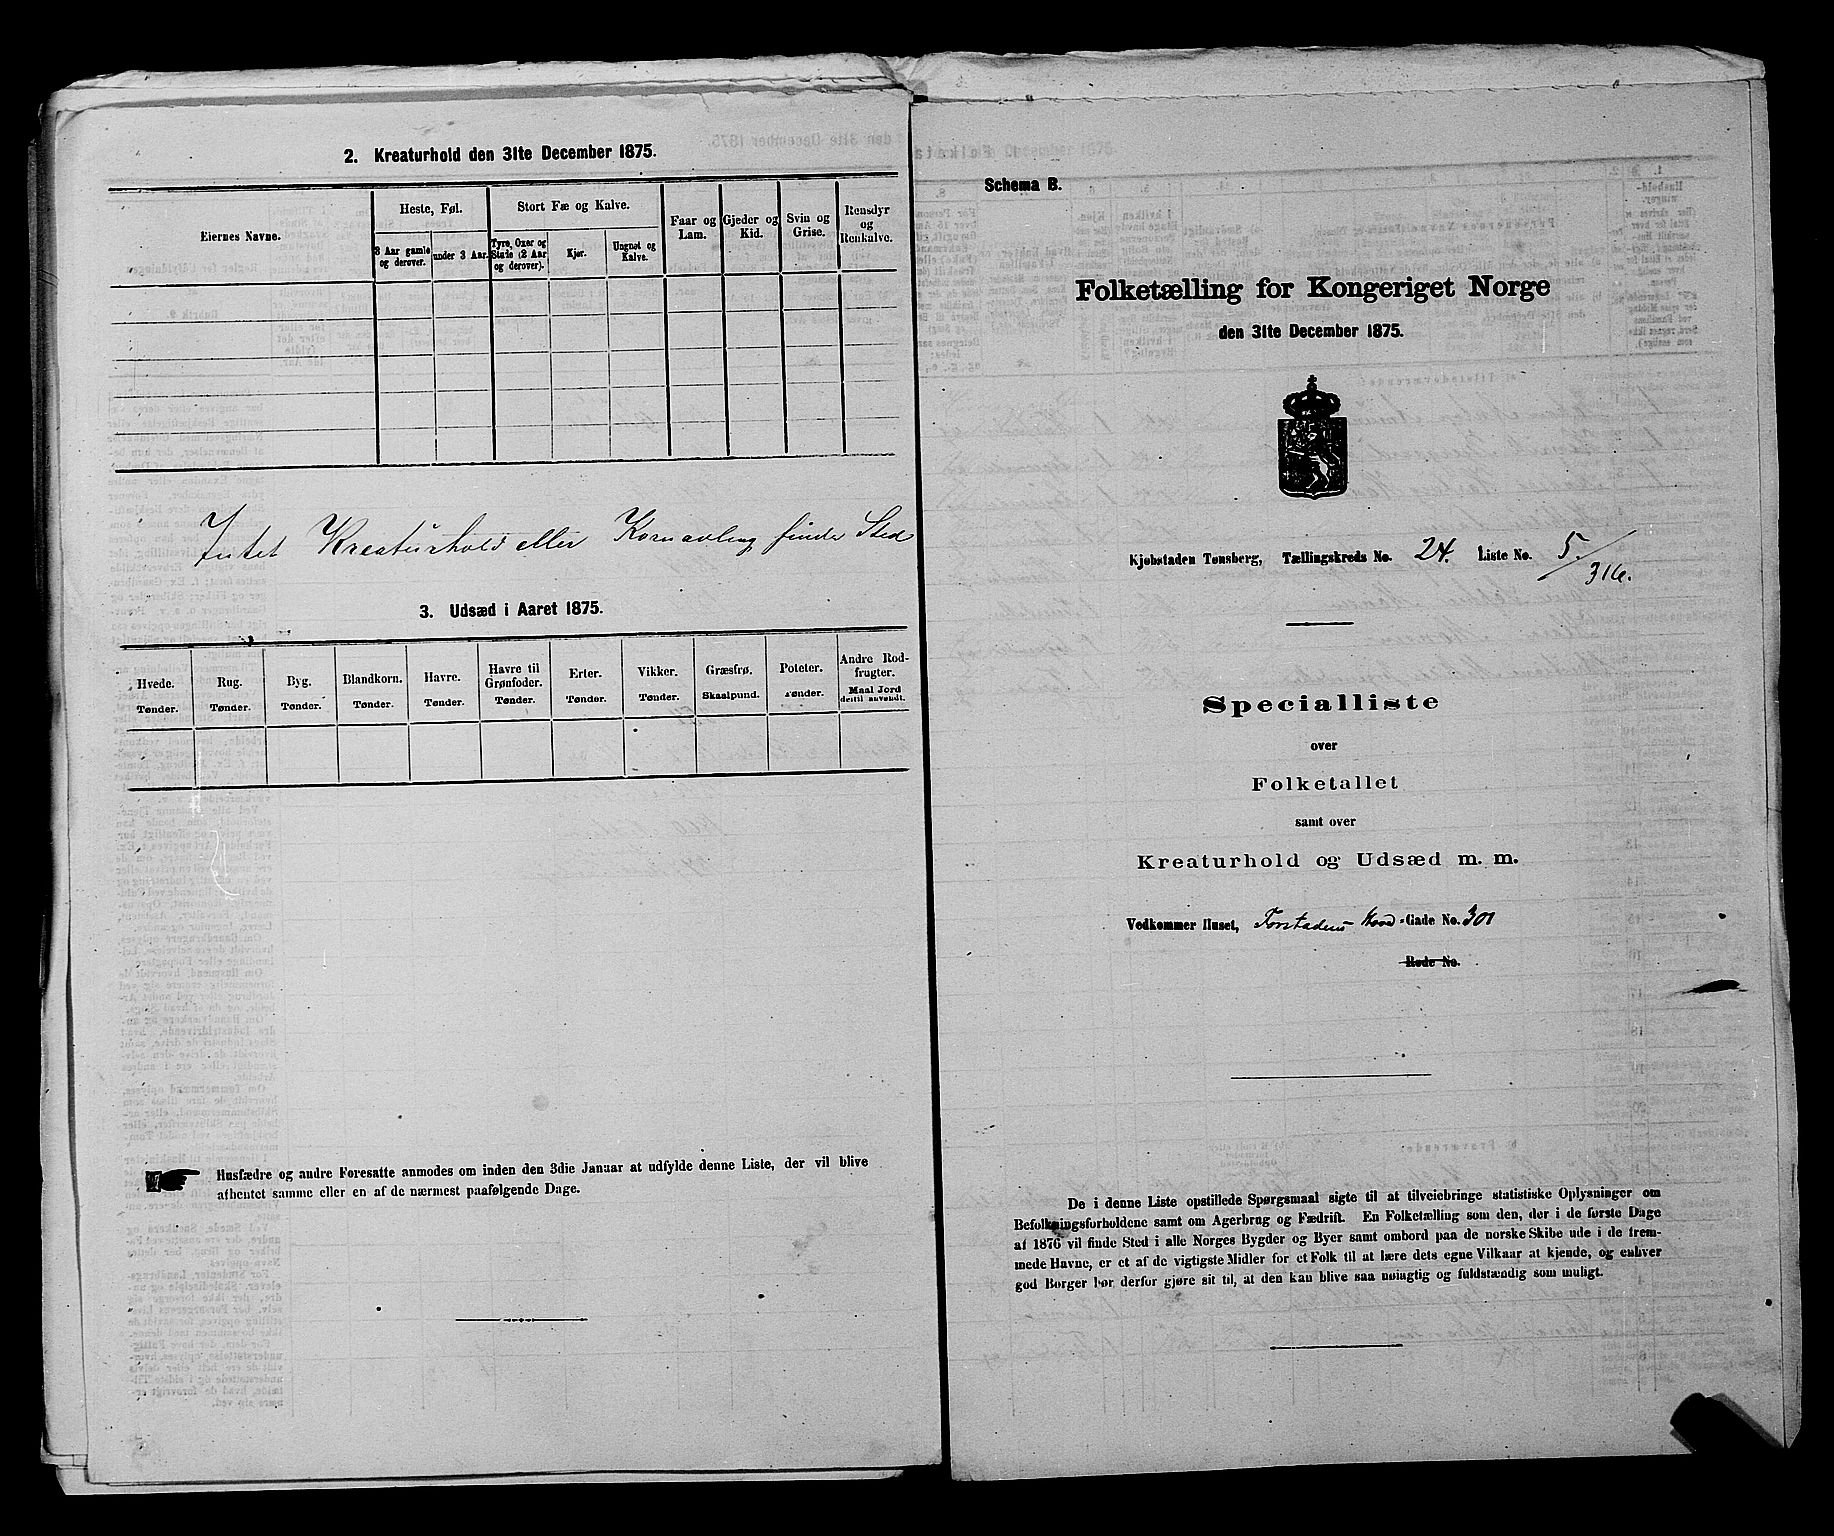 2. Kreaturhold den 31te December 1875.
Eiernes Navne.
Heste, Føl.
Stort Fæ og Kalve.
Faar og
Lam.
Gjeder og
Kid.
Svin og
Grise.
Rensdyr
og
Renkalve.
3 Aar gamle
og derover.
under 3 Aar.
Tyre, Oxer og
Stude (2 Aar
og derover).
Kjør.
Ungnøt og
Kalve.
Intet Kreaturhold eller Kornavling finder Sted
3. Udsæd i Aaret 1875.
Hvede.
Tønder.
Rug.
Tønder.
Byg.
Tønder.
Blandkorn.
Tønder.
Havre.
Tønder.
Havre til
Grønfoder.
Tønder.
Erter.
Tønder.
Vikker.
Tønder.
Græsfrø.
Skaalpund.
Poteter.
Tønder.
Andre Rod-
frugter.
Maal Jord
dertil anvendt.
Husfædre og andre Foresatte anmodes om inden den 3die Januar at udfylde denne Liste, der vil blive
afhentet samme eller en af de nærmest paafølgende Dage.
Schema B.
Folketælling for Kongeriget Norge
den 31te December 1875.
Kjøbstaden Tønsberg, Tællingskreds No. 24. Liste No. 5./316.
Specialliste
over
Folketallet
samt over
Kreaturhold og Udsæd m. m.
Vedkommer Huset, Forstadens Hoved-Gade No. 301
Rode No.
De i denne Liste opstillede Spørgsmaal sigte til at tilveiebringe statistiske Oplysninger om
Befolkningsforholdene samt om Agerbrug og Fædrift. En Folketælling som den, der i de første Dage
af 1876 vil finde Sted i alle Norges Bygder og Byer samt ombord paa de norske Skibe ude i de frem-
mede Havne, er et af de vigtigste Midler for et Folk til at lære dets egne Vilkaar at kjende, og enhver
god Borger bør derfor gjøre sit til, at den kan blive saa nøiagtig og fuldstændig som muligt.